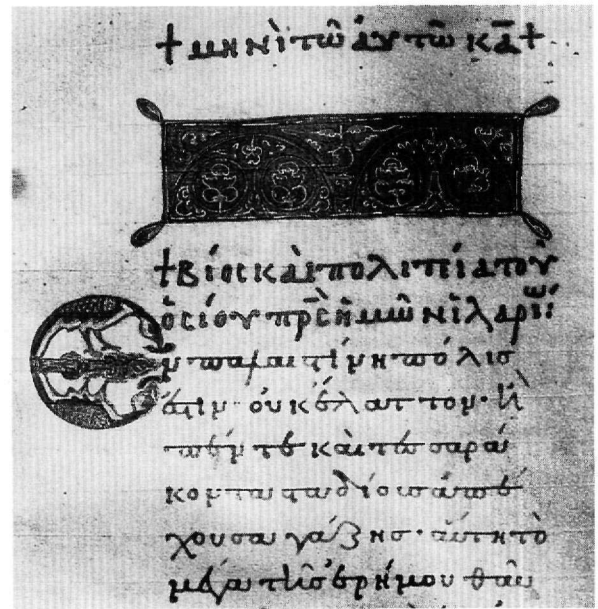 † μηνὶ τῶ ἀυτῶ κα̅ †
† Βίος κὰι πολιτεία τοῦ
ὁσίου πρ̅ς ἡμῶν ἱλαρίω
Ἐν παλαιστίνη πόλισ
ἐστὶν· οὐκ ἔλαττον· ἢ
πέντε κὰι τεσσαρά
κοντα σταδίοις ἀπέ
χουσα γάζης· ἀύτη τὸ
μέγα τῆς ἐρήμου θαῦ